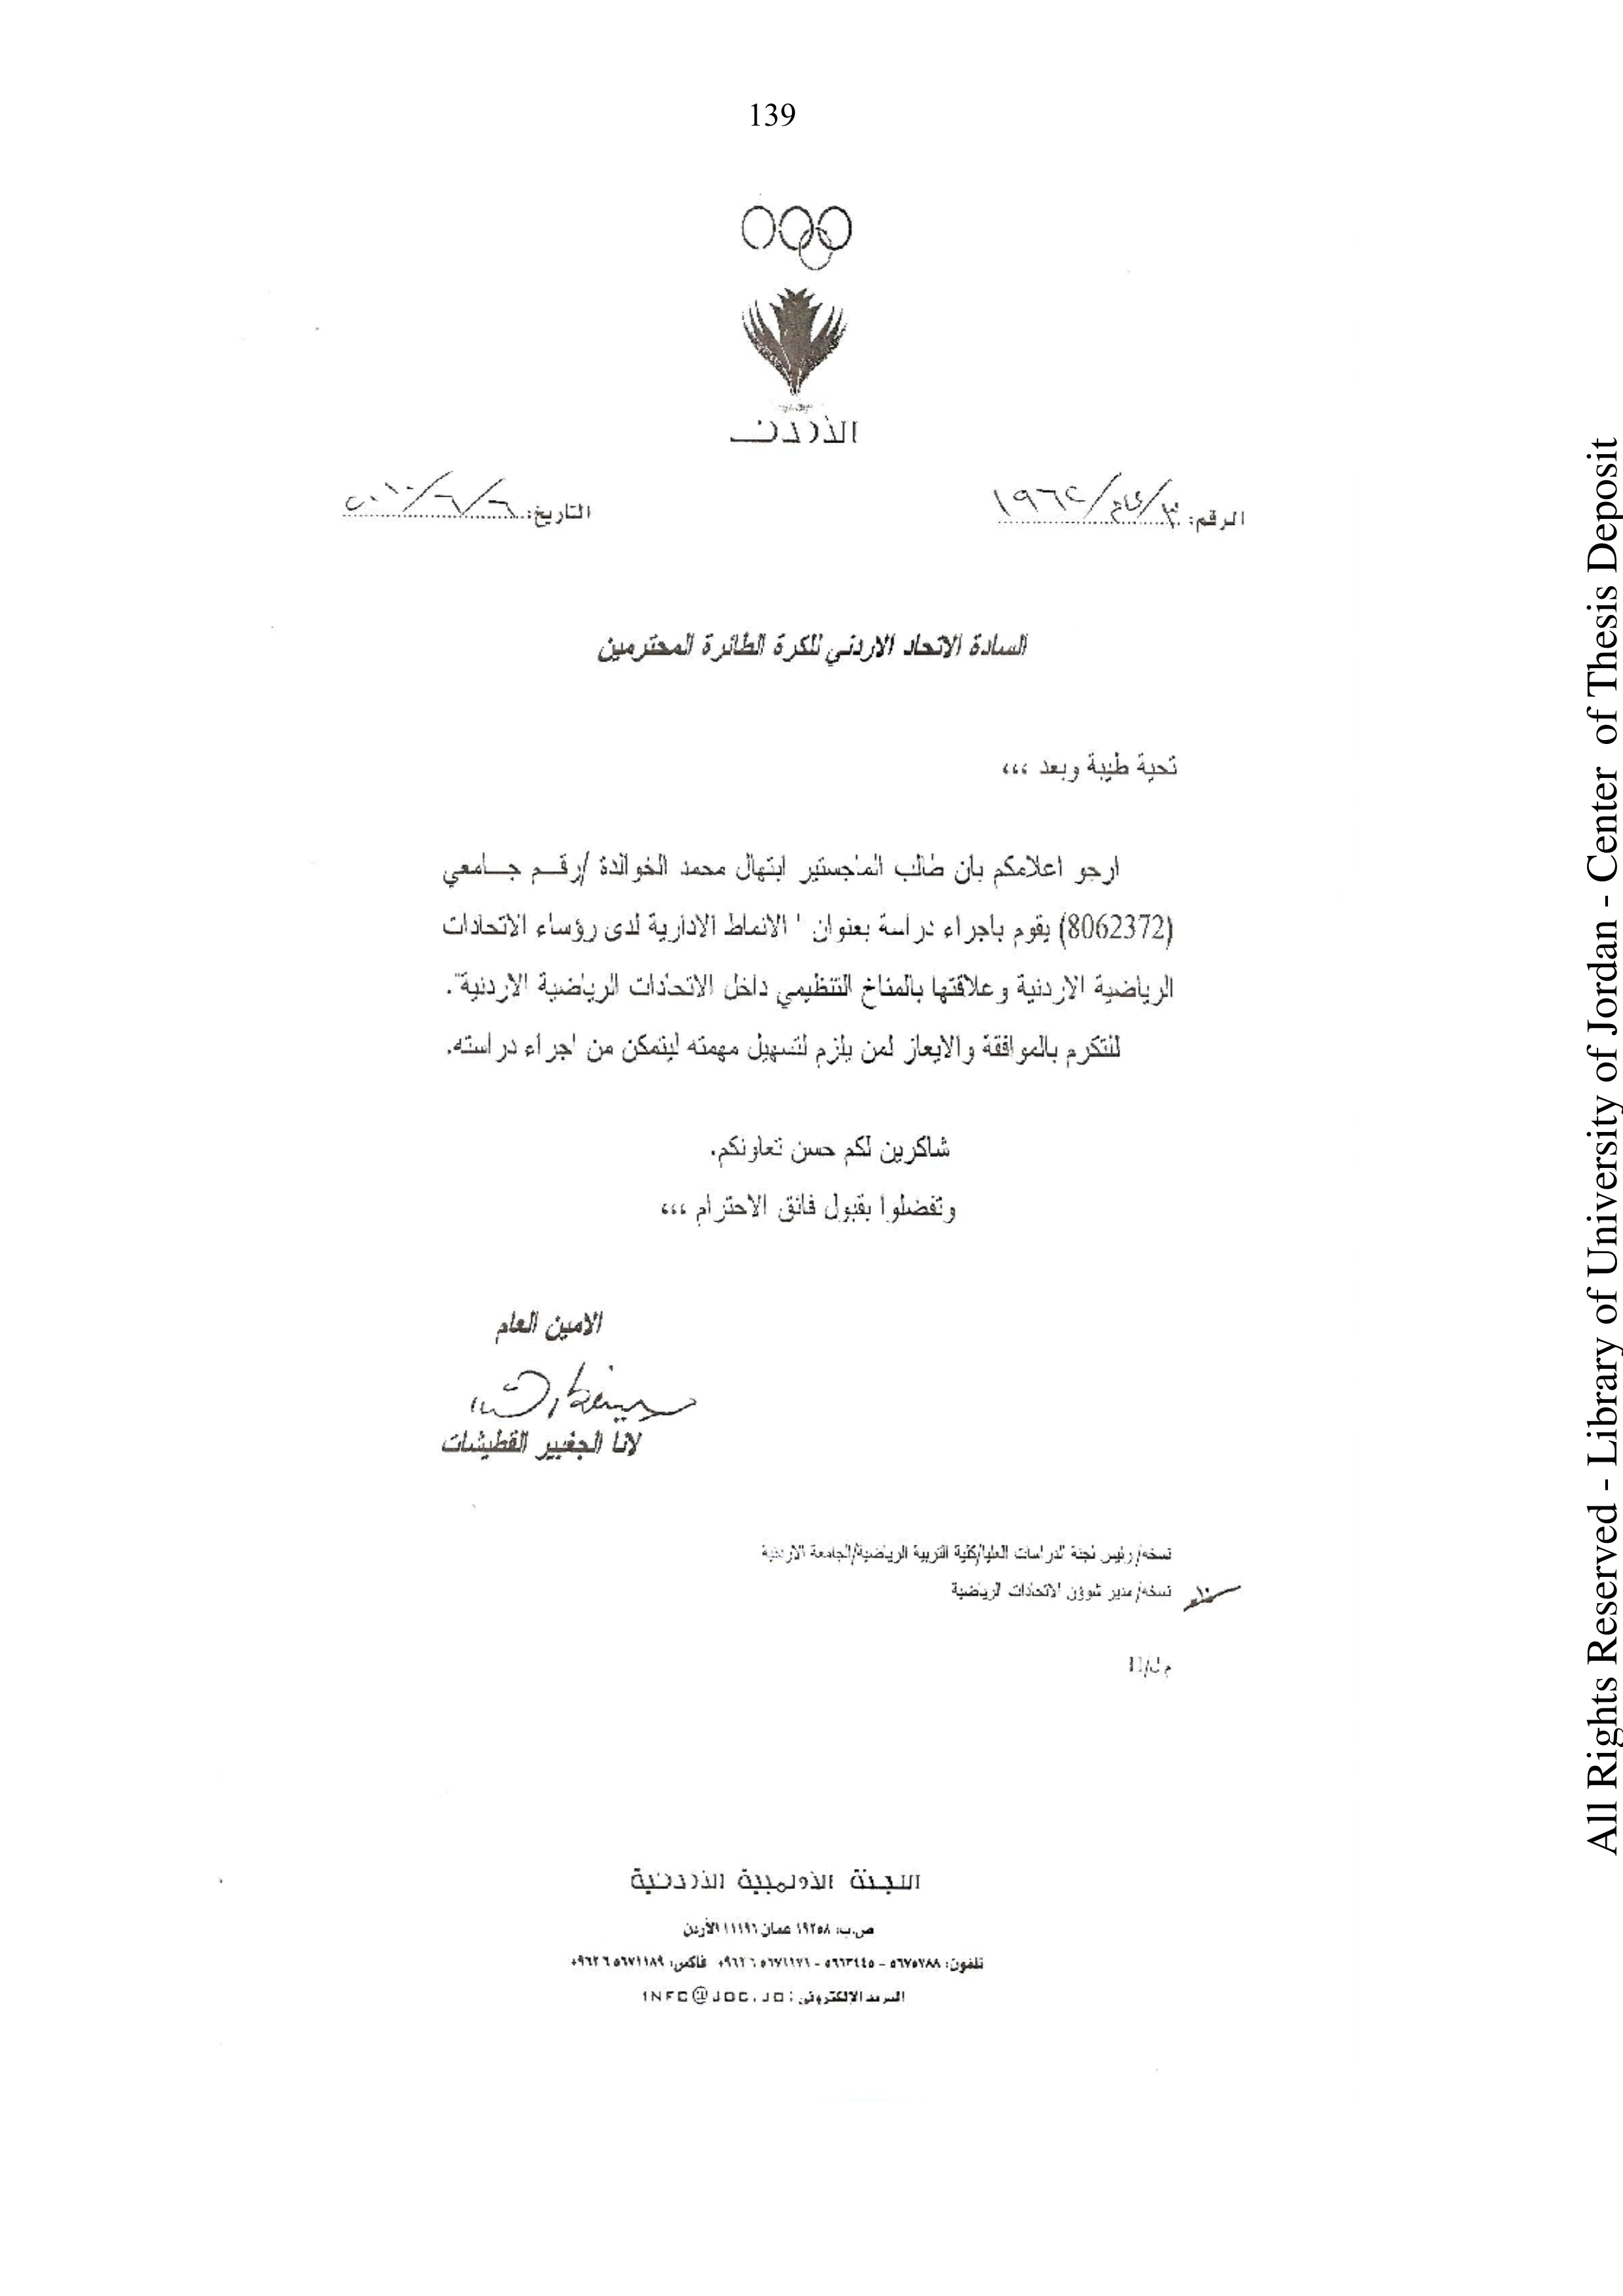 139
الأردن
الرقم: ٣/ /١٩٦٢
التاريخ: ٢٠١٠/٦/٦
السادة الاتحاد الاردني للكرة الطائرة المحترمين
تحية طيبة وبعد ،،،
ارجو اعلامكم بان طالب الماجستير ابتهال محمد الخوالدة /رقم جامعي
(8062372) يقوم باجراء دراسة بعنوان " الانماط الادارية لدى رؤساء الاتحادات
الرياضية الاردنية وعلاقتها بالمناخ التنظيمي داخل الاتحادات الرياضية الاردنية".
للتكرم بالموافقة والايعاز لمن يلزم لتسهيل مهمته ليتمكن من اجراء دراسته.
شاكرين لكم حسن تعاونكم.
وتفضلوا بقبول فائق الاحترام ،،،
الامين العام
لانا الجغبير القطيشات
نسخة/ رئيس لجنة الدراسات العليا/كلية التربية الرياضية/الجامعة الاردنية
نسخة/ مدير شؤون الاتحادات الرياضية
اللجنة الأولمبية الأردنية
ص.ب: ١٩٢٥٨ عمان ١١١٩٦ الأردن
تلفون: ٥٦٧٥٧٨٨ - ٥٦٦٣٤٤٥ - ٥٦٧١١٧٦ ٦ ٩٦٢+ فاكس: ٥٦٧١١٨٩ ٦ ٩٦٢+
البريد الإلكتروني: INFO@JOC.JO
All Rights Reserved - Library of University of Jordan - Center of Thesis Deposit